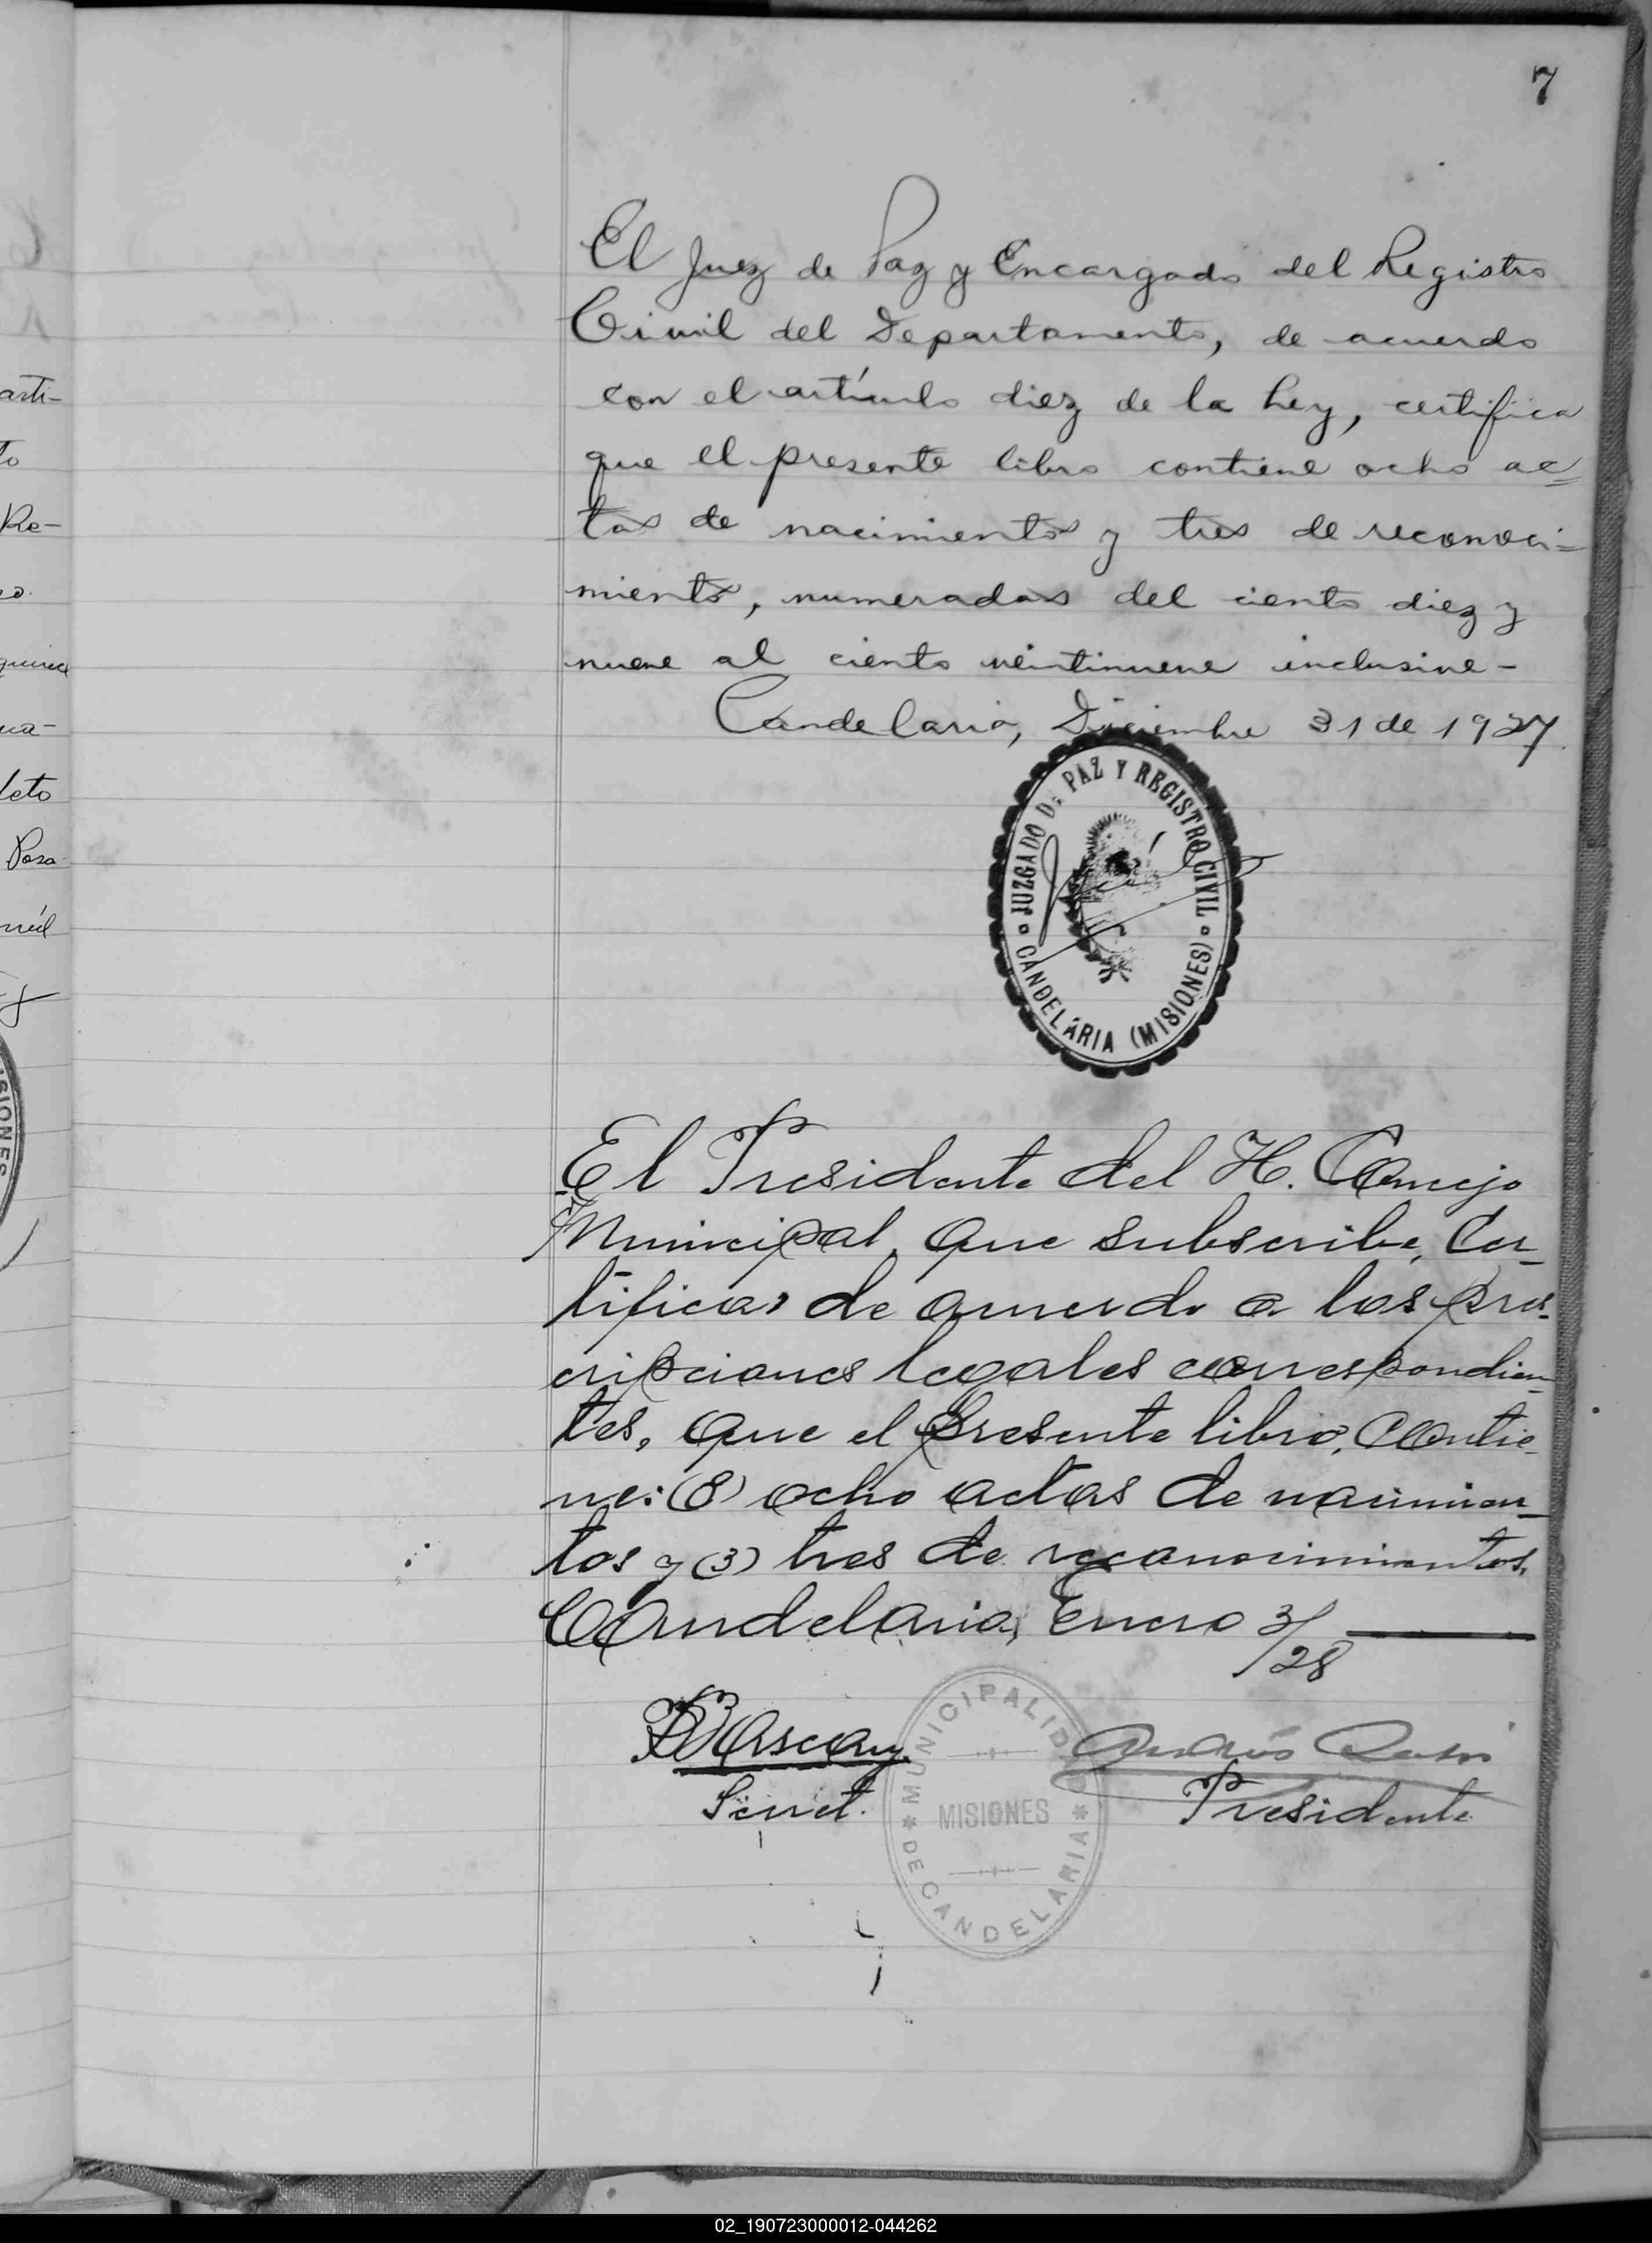 7
El Juez de Paz y Encargado del Registro
Civil del Departamento, de acuerdo
con el artículo diez de la Ley, certifica
que el presente libro contiene ocho ac=
tas de nacimientos y tres de reconoci=
miento, numeradas del ciento diez y
nueve al ciento veintinueve inclusive-
Candelaria, Diciembre 31 de 1927.
JUZGADO DE PAZ Y REGISTRO CIVIL
CANDELARIA (MISIONES)
El Presidente del H. Concejo
Municipal, que subscribe, Cer-
tifica: de acuerdo a las pres-
cripciones legales correspondien-
tes, que el presente libro, contie-
ne: (8) ocho actas de nacimien-
tos y (3) tres de reconocimientos.
Candelaria, Enero 3/28
Secret.
MUNICIPALIDAD
MISIONES
DE CANDELARIA
Andrés
Presidente
arti-
to
Re-
ua-
leto
Posa
mil
SIONES
02_190723000012-044262